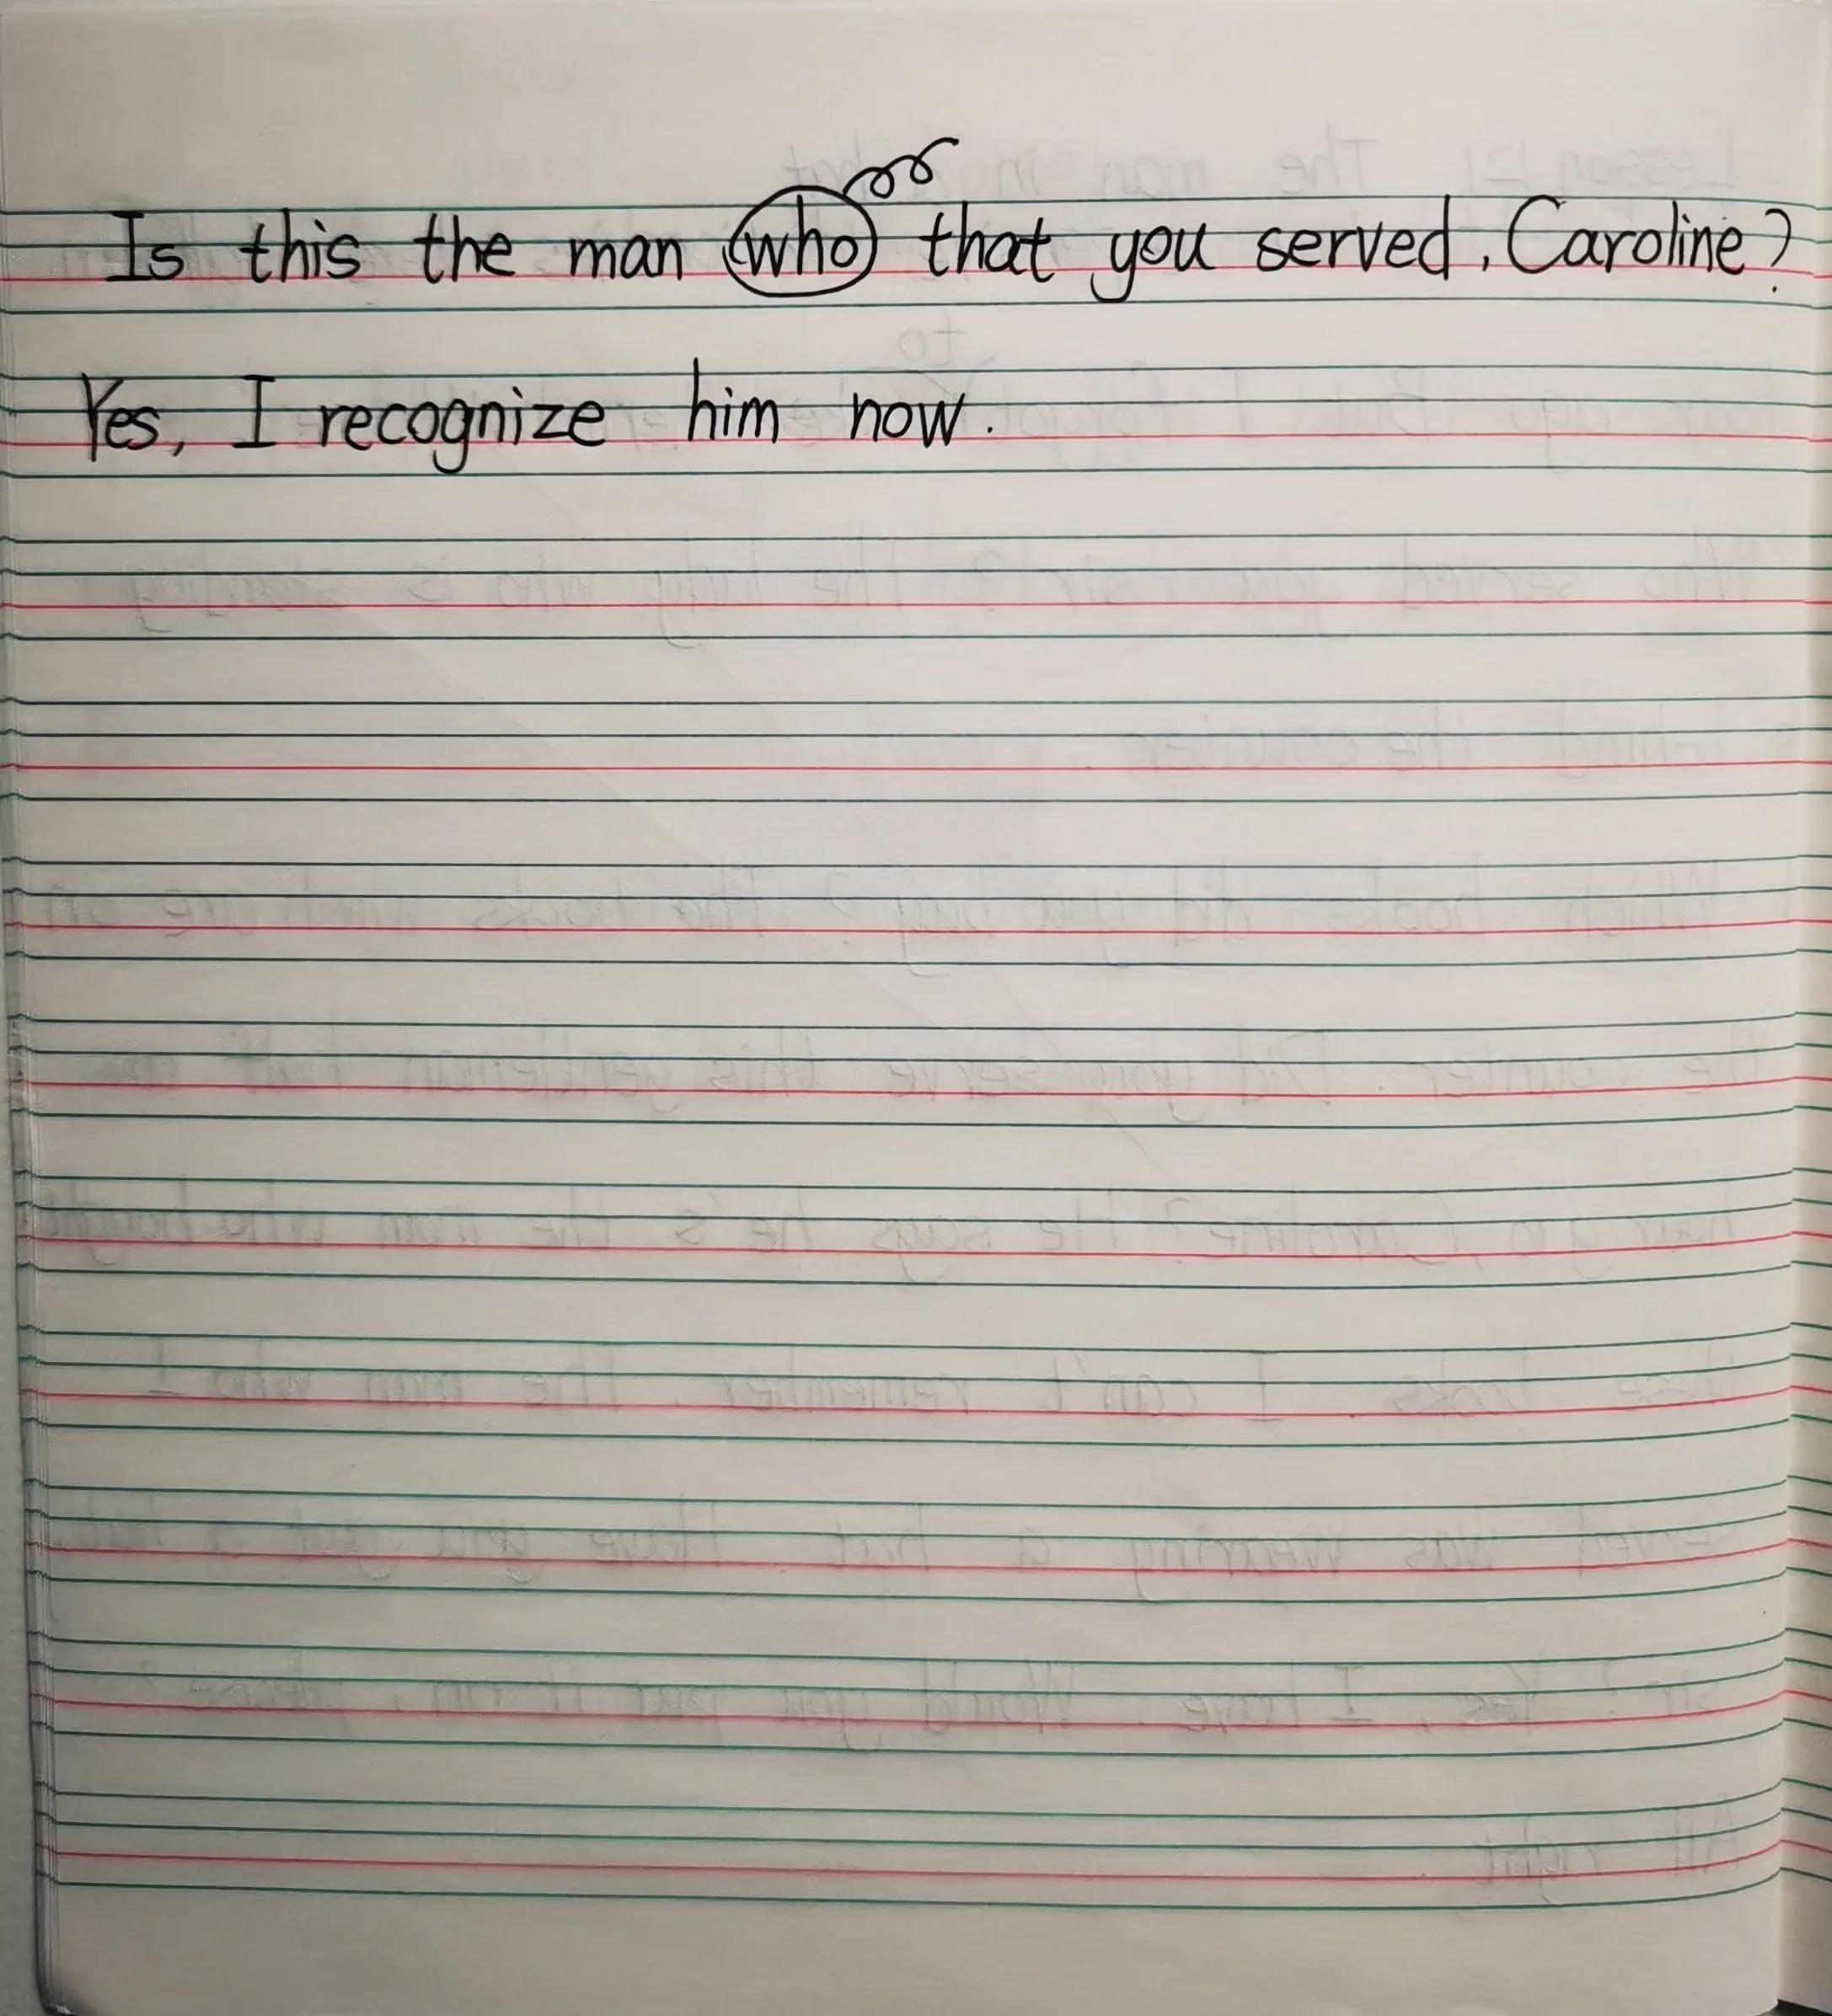 Is this the man who that you served, Caroline?
Yes, I recognize him now.